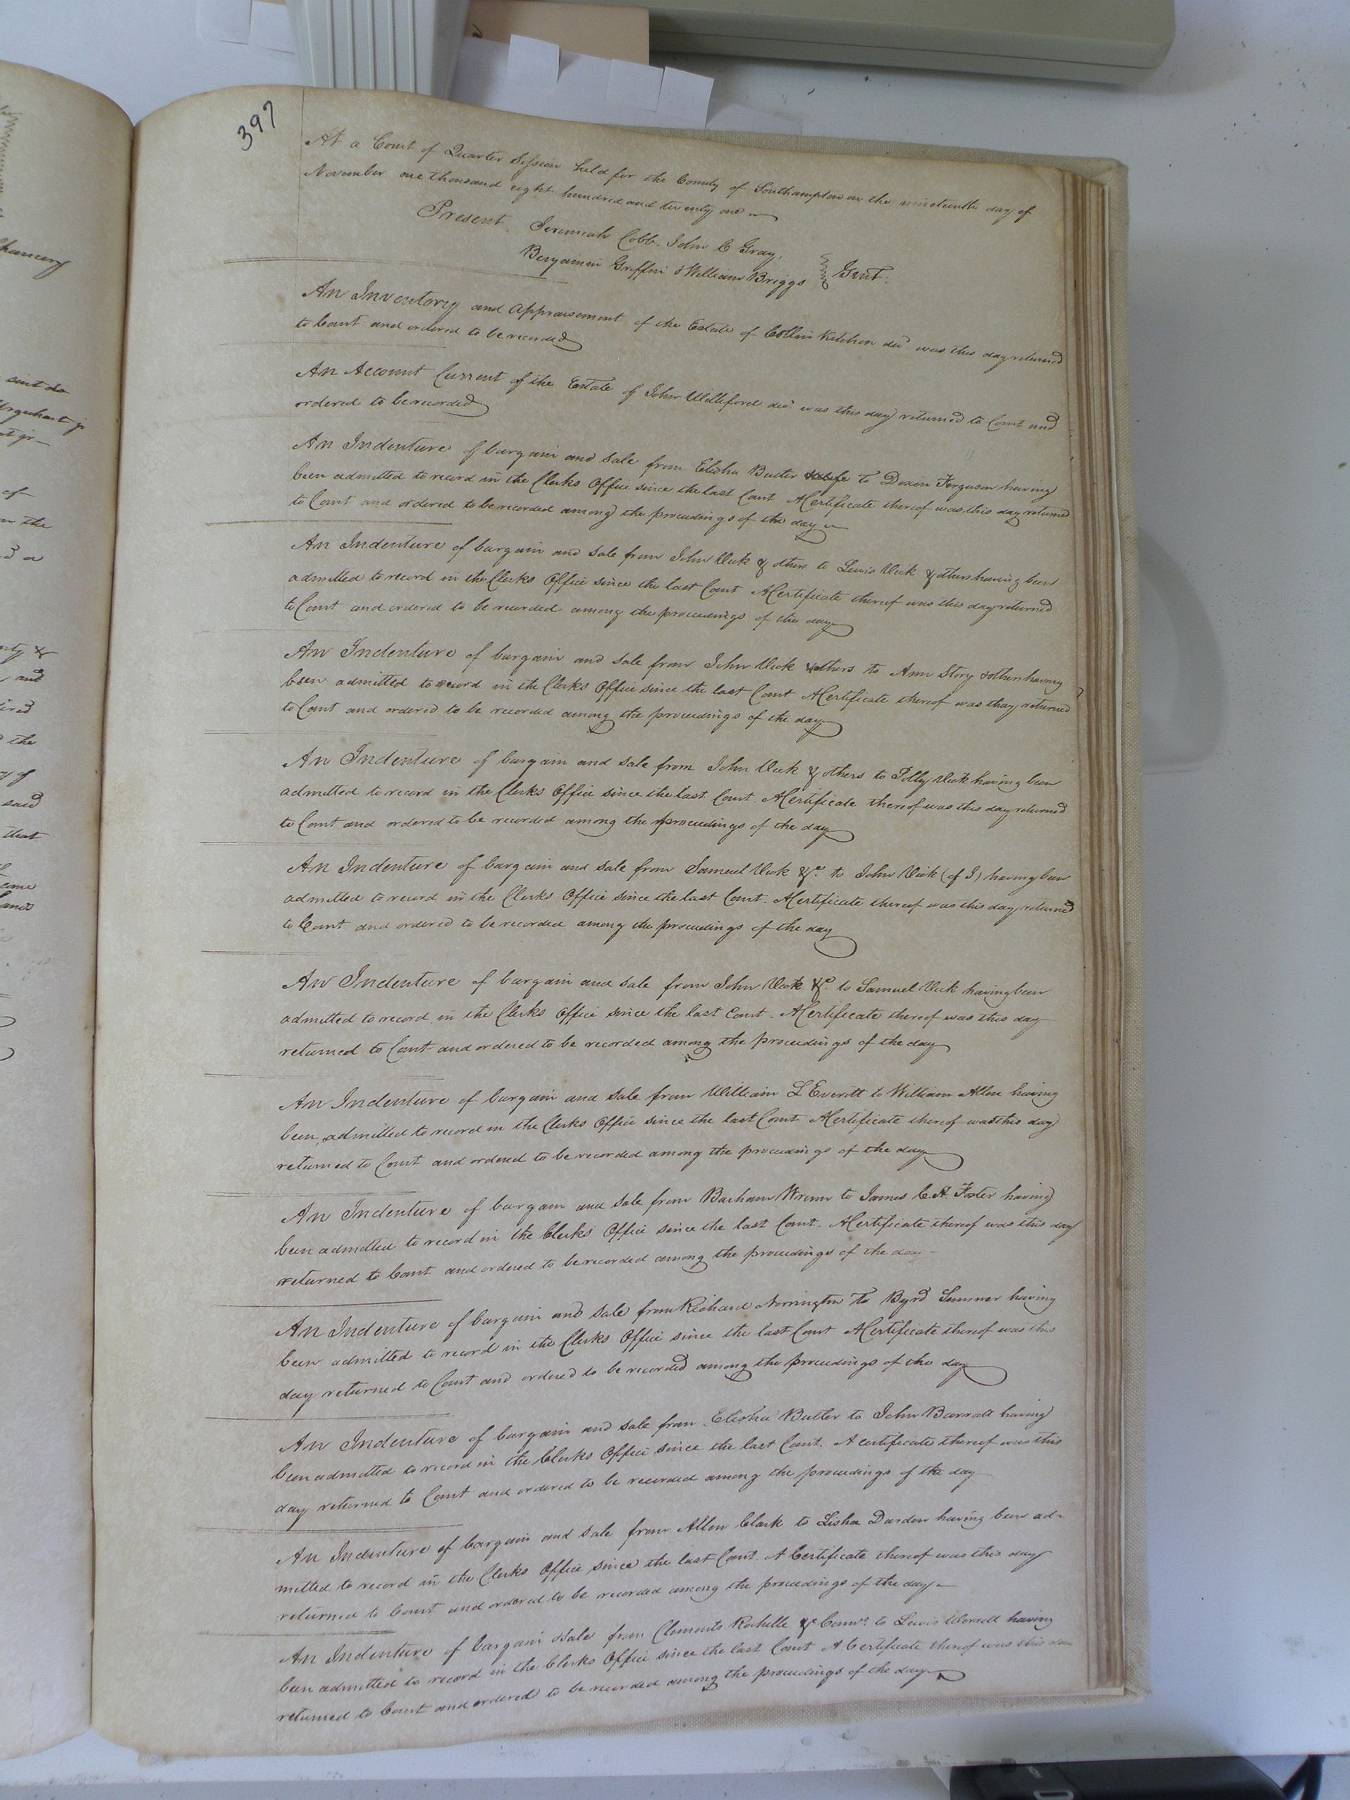 397
At a Court of Quarter Session held for the County of Southampton on the nineteenth day of
November one thousand eight hundred and twenty one
Present Jeremiah Cobb. John C Gray.
Benjamin Griffin & William Briggs Gent.
An Inventory and appraisement of the Estate of Collin Kitchen decd was this day returned
to Court and ordered to be recorded
An Account Current of the Estate of John Williford decd was this day returned to Court and
ordered to be recorded
An Indenture of bargain and sale from Elisha Butler & wife to Dixon Ferguson having
been admitted to record in the Clerks Office since the last Court A Certificate thereof was this day returned
to Court and ordered to be recorded among the proceedings of the day
An Indenture of bargain and sale from John Vick & others to Lewis Vick & others having been
admitted to record in the Clerks Office since the last Court A Certificate thereof was this day returned
to Court and ordered to be recorded among the proceedings of the day
An Indenture of bargain and sale from John Vick & others to Ann Story & others having
been admitted to record in the Clerks Office since the last Court A Certificate thereof was thay returned
to Court and ordered to be recorded among the proceedings of the day
An Indenture of bargain and sale from John Vick & others to Polly Vick having been
admitted to record in the Clerks Office since the last Court. A Certificate thereof was this day returned
to Court and ordered to be recorded among the proceedings of the day
An Indenture of bargain and sale from Samuel Vick &c. to John Vick (of J) having been
admitted to record in the Clerks Office since the last Court. A Certificate thereof was this day returned
to Court and ordered to be recorded among the proceedings of the day
An Indenture of bargain and sale from John Vick &c. to Samuel Vick having been
admitted to record in the Clerks Office since the last Court. A Certificate thereof was this day
returned to Court and ordered to be recorded among the proceedings of the day
An Indenture of bargain and sale from William L Everitt to William Allen having
been admitted to record in the Clerks Office since the last Court A Certificate thereof was this day
returned to Court and ordered to be recorded among the proceedings of the day
An Indenture of bargain and sale from Barham Wrenn to James C. A. Foster having
been admitted to record in the Clerks Office since the last Court. A Certificate thereof was this day
returned to Court and ordered to be recorded among the proceedings of the day
An Indenture of bargain and sale from Richard Norrington to Byrd Sumner having
been admitted to record in the Clerks Office since the last Court A Certificate thereof was this
day returned to Court and ordered to be recorded among the proceedings of the day
An Indenture of bargain and sale from Elisha Butler to John Barrett having
been admitted to record in the Clerks Office since the last Court. A certificate thereof was this
day returned to Court and ordered to be recorded among the proceedings of the day
An Indenture of bargain and sale from Allen Clark to Lisha Darden having been ad-
mitted to record in the Clerks Office since the last Court. A Certificate thereof was this day
returned to Court and ordered to be recorded among the proceedings of the day
An Indenture of bargain & sale from Clements Rochelle & Comrs. to Lewis Worrell having
been admitted to record in the Clerks Office since the last Court A Certificate thereof was this day
returned to Court and ordered to be recorded among the proceedings of the day